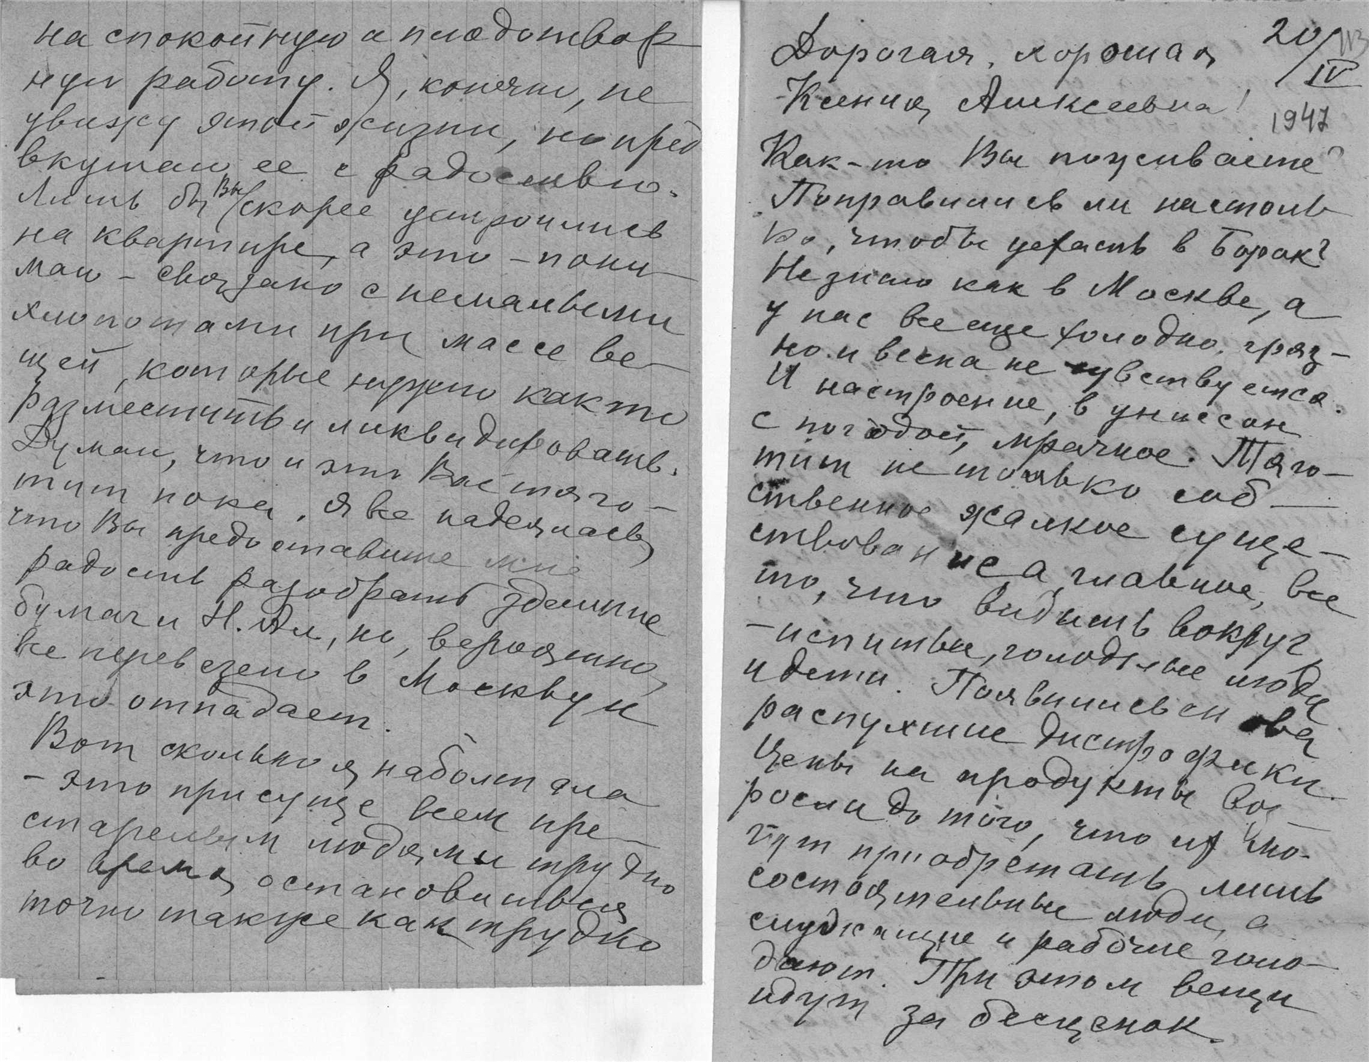 на спокойную и плодотвор
ную работу. Я, конечно, не
увижу этой жизни, но пред
вкушаю ее с радостью.
Лишь бы Вы скорее устроились
на квартире, а это – пони
маю – связано с немалыми
хлопотами при массе ве
щей, которые нужно как то
разместить и ликвидировать.
Думаю, что и это Вас тяго–
тит пока. Я все надеялась,
что Вы предоставите мне
радость разобрать здешние
бумаги Н. Ал, но, вероятно,
все перевезено в Москву и
это отпадает.
Вот сколько я наболтала
– это присуще всем пре
старелым людям и трудно
во время остановиться
точно также как трудно
20/IV
1947
Дорогая, хорошая
Ксения Алексеевна!
Как-то Вы поживаете?
Поправились ли настоль
ко, чтобы уехать в Борок?
Не знаю как в Москве, а
у нас все еще холодно, гряз–
но и весна не чувствуется.
И настроение, в унисон
с погодой, мрачное. Тяго–
тит не только соб–
ственное жалкое суще–
ствование а, главное, все
то, что видишь вокруг
– испитые, голодные люди
и дети. Появились снова
распухшие дистрофики.
Цены на продукты воз
росли до того, что их мо–
гут приобретать лишь
состоятельные люди, а
служащие и рабочие голо–
дают. При этом вещи
идут за бесценок.